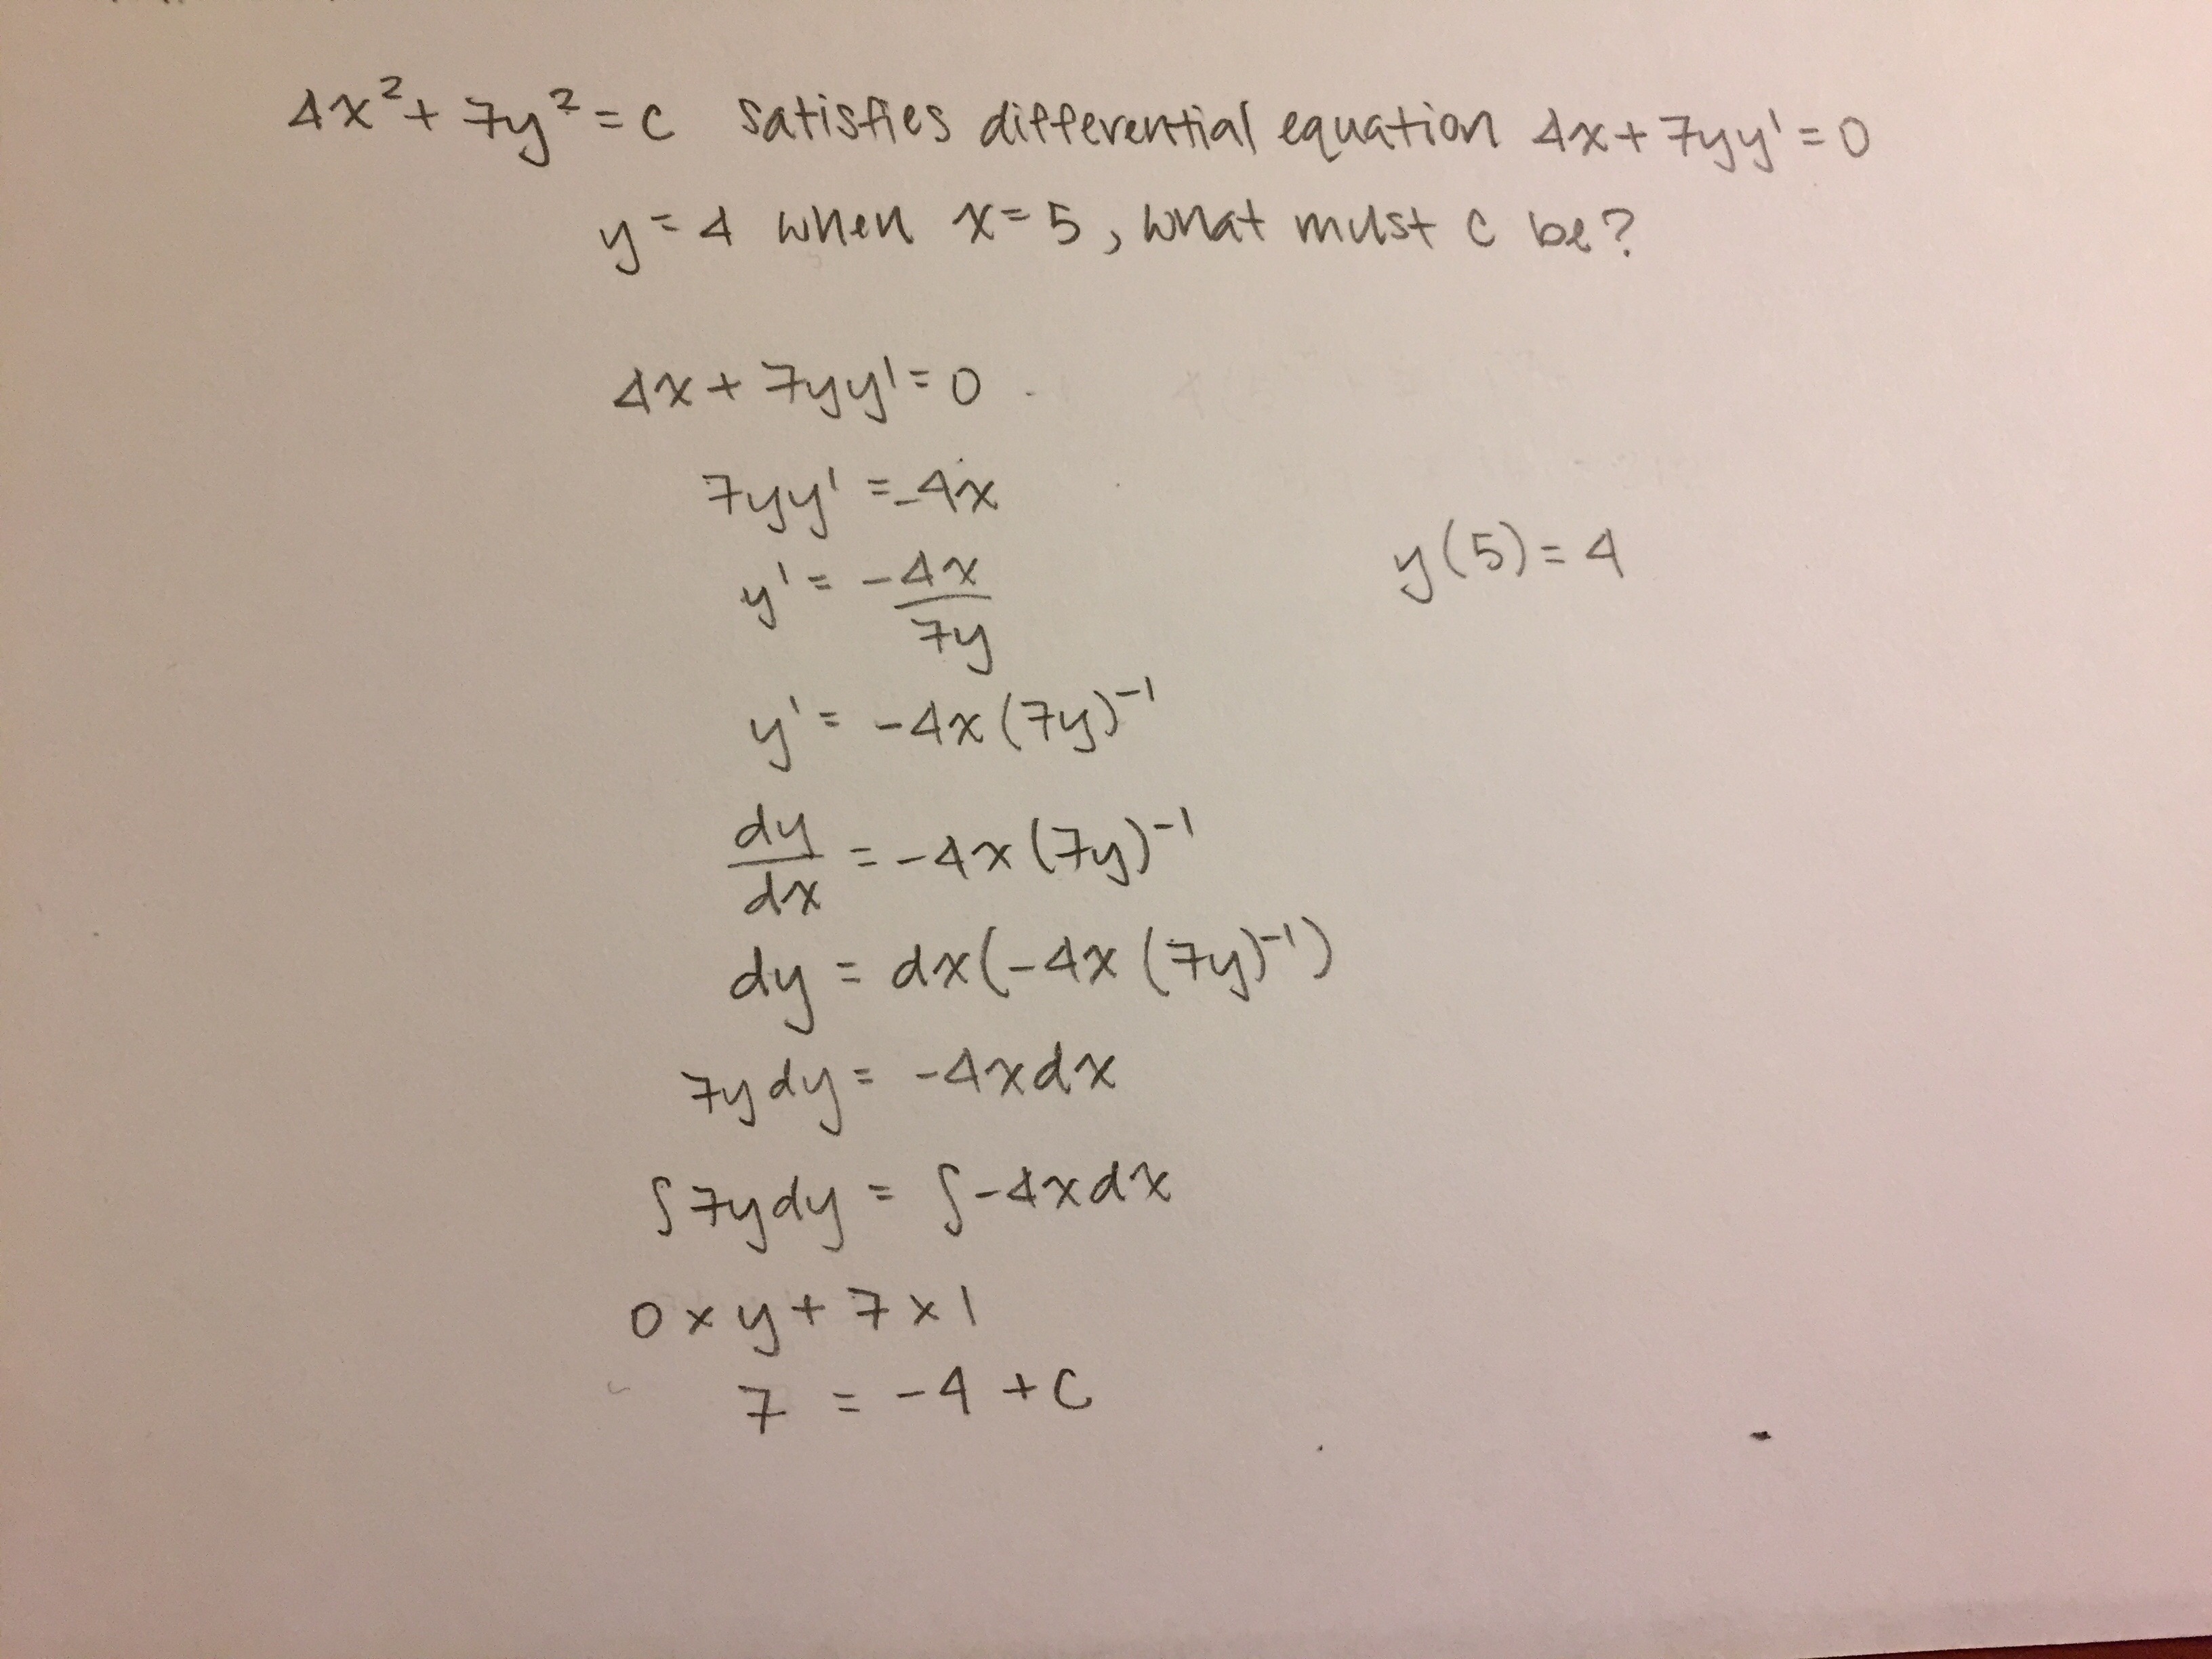 4x² + 7y² = c satisfies differential equation 4x + 7yy' = 0
y = 4 when x = 5, what must c be?
4x + 7yy' = 0
7yy' = -4x
y' = -4x/7y
y(5) = 4
y' = -4x(7y)⁻¹
dy/dx = -4x(7y)⁻¹
dy = dx(-4x(7y)⁻¹)
7ydy = -4xdx
∫7ydy = ∫-4xdx
0 × y + 7 × 1
7 = -4 + C